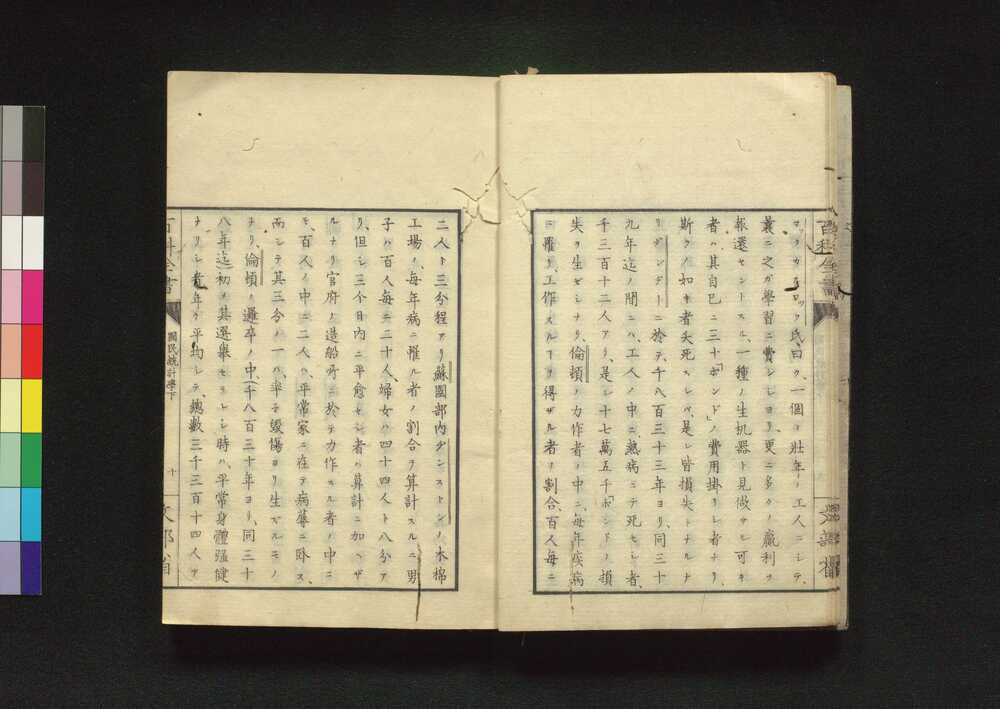 マツカカロツク氏曰ク、一個ノ壯年ノ工人ニシテ、
曩ニ之ガ學習ニ費シシヨリ、更ニ多クノ贏利ヲ
報還セントスル、一種ノ生机器ト見做サレ可キ
者ハ、其自已ニ三十「ポンド」ノ費用掛リシ者ナリ、
斯クノ如キ者夭死スレバ、是レ皆損失トナルナ
リ「ダンデー」ニ於テ、千八百三十三年ヨリ、同三十
九年迄ノ間ニハ、工人ノ中ニ熱病ニテ死セシ者、
千三百十二人アリ、是レ十七萬五千「ポンド」ノ損
失ヲ生ゼシナリ、倫頓ノ力作者ノ中ニ、每年疾病
ニ罹リ、工作スル丁ヲ得ザル者ノ割合、百人每ニ
百科全書
文部省
二人ト三分程アリ蘇國部內ダンストンノ木棉
工場ノ、每年病ニ罹ル者ノ割合ヲ算計スルニ男
子ハ百人每ニ二十人、婦女ハ四十四人ト八分ア
リ、但シ三个日內ニ平愈セシ者ハ算計ニ加ヘザ
ルナリ官府ノ造船所ニ於テ力作スル者ノ中ニ
モ、百人ノ中ニ二人ハ、平常家ニ在テ病蓐ニ臥ス、
而シテ其三分ノ一ハ、卒ニ毀傷ヨリ生ズルモノ
ナリ、倫頓ノ邏卒ノ中(千八百三十年ヨリ、同三十
八年迄)初メ其選舉セラレシ時ハ、平常身體强健
ナリシ者、年々平均シテ、總數三千三百十四人ヲ
百科全書
國民統計學下
十
文部省